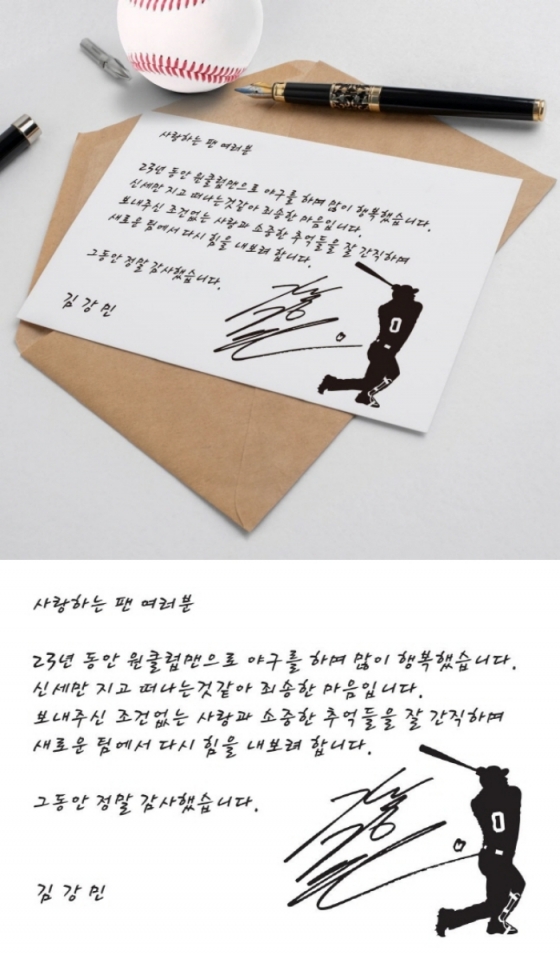 사랑하는 팬 여러분
23년 동안 원클럽맨으로 야구를 하며 많이 행복했습니다.
신세만 지고 떠나는것같아 죄송한 마음입니다.
보내주신 조건없는 사랑과 소중한 추억들을 잘 간직하며
새로운 팀에서 다시 힘을 내보려 합니다.
그동안 정말 감사했습니다.
김강민
0
0
사랑하는 팬 여러분
23년 동안 원클럽맨으로 야구를 하며 많이 행복했습니다.
신세만 지고 떠나는것같아 죄송한 마음입니다.
보내주신 조건없는 사랑과 소중한 추억들을 잘 간직하며
새로운 팀에서 다시 힘을 내보려 합니다.
그동안 정말 감사했습니다.
김강민
0
0